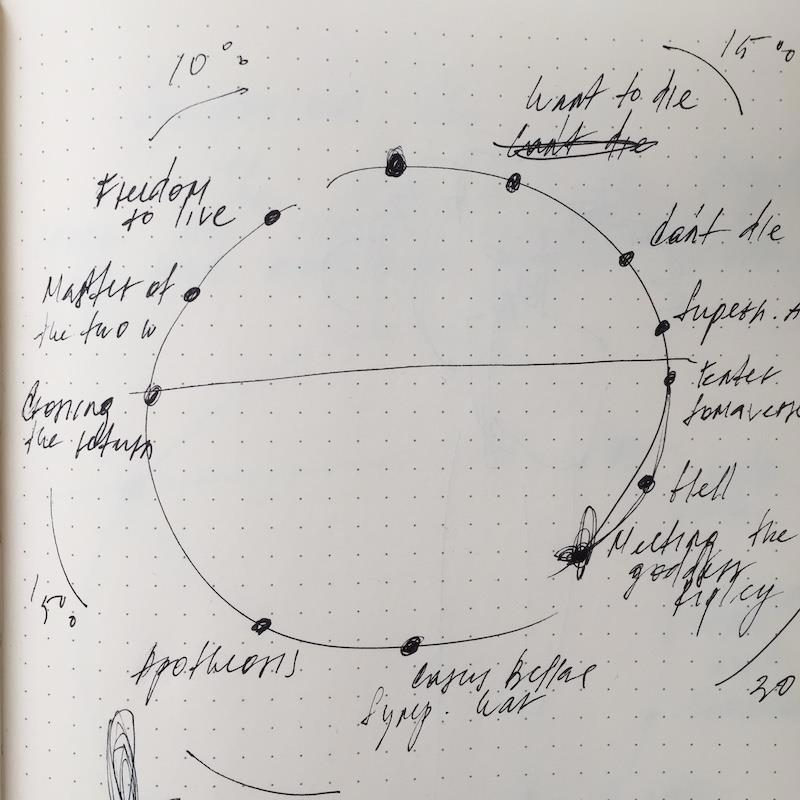 10%
15%
Want to die
Can't die
Freedom
to live
Can't die
Master of
the two w
Supern.
Enter
Crossing
the return
Hell
Meeting the
goddess
15%
20
Apotheosis
Casus Bellae
Symp. War